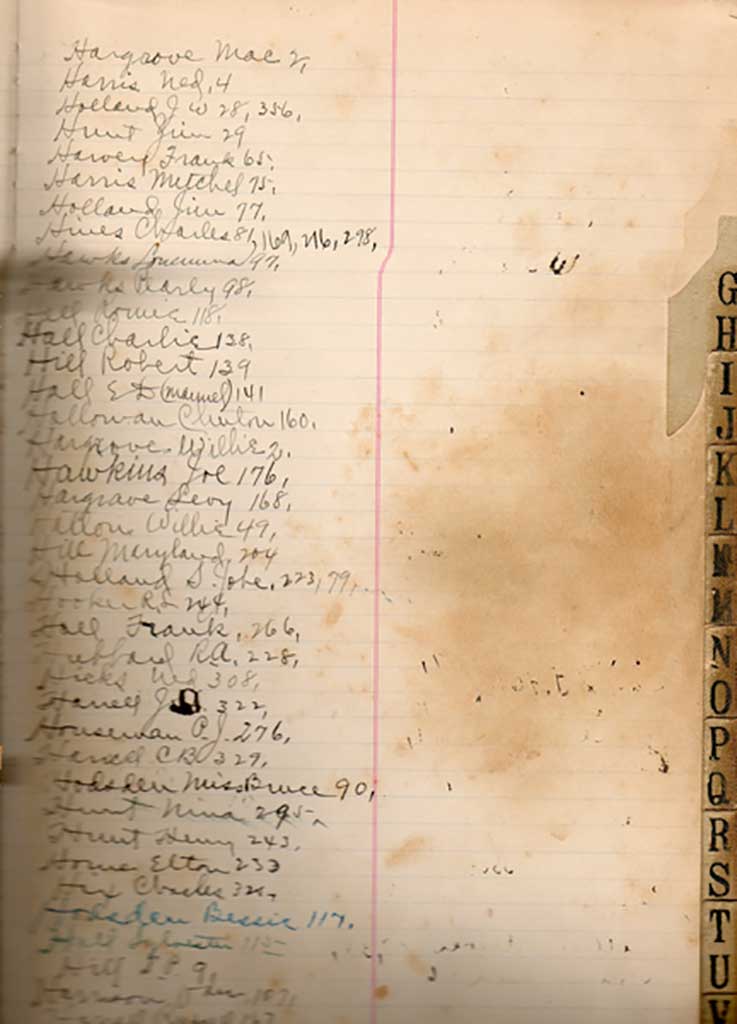 Hargrove Mac 2,
Harris Ned, 4
Holland J W 28, 356,
Hunt Jim 29
Harvey Frank 65,
Harris Mitchel 75,
Holland Jim 77,
Hines Charles 81, 169, 216, 298,
Hawks 97,
Hawks Pearly 98,
Hall 118,
Hall Charlie 138,
Hill Robert 139
Hall E D (manuel) 141
Holloman Clinton 160,
Hargrove Willie 2,
Hawkins Joe 176,
Hargrave Levy 168,
Willie 49,
Hill Maryland, 204
Holland S. Jobe, 223, 79,
Hooker R.S 244,
Hall Frank, 266,
Hubbard R.A, 228,
Hicks Ned 308,
Harrell J. 322,
Houseman P.J. 276,
Harrell C B 329,
Hodsden Miss Bruce 90,
Hunt Nina 295,
Hunt Henry 243,
Horne Elton 233
Charles
Hodsden Bessie 117,
Hall Sylvester 115
Hill 9,
Harrison
G
H
I
J
K
L
M
N
O
P
Q
R
S
T
U
V